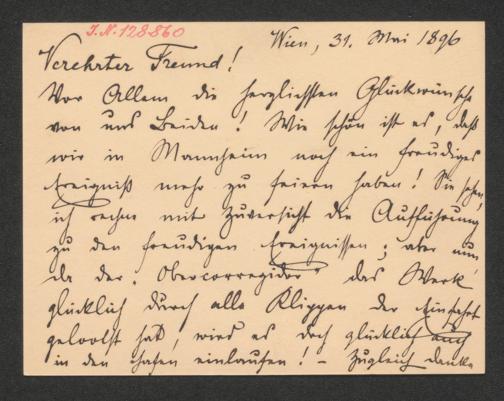 I.N. 128860
Wien, 31. Mai 1896
Verehrter Freund!
Vor Allem die herzlichsten Glückwünsche
von uns Beiden! Wie schön ist es, daß
wir in Mannheim noch ein freudiges
Ereigniß mehr zu feiern haben! Sie sehen,
ich rechne mit Zuversicht die Aufführung
zu den freudigen Ereignissen; aber nun
da der "Obercorregidor" das Werk
glücklich durch alle Klippen der Einfahrt
gelootst hat, wird es doch glücklich auch
in den Hafen einlaufen! – Zugleich danke